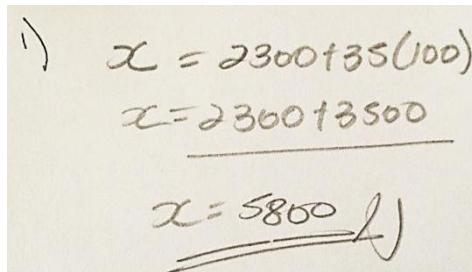 1) x = 2300+35(100)
x=2300+3500
x=5800